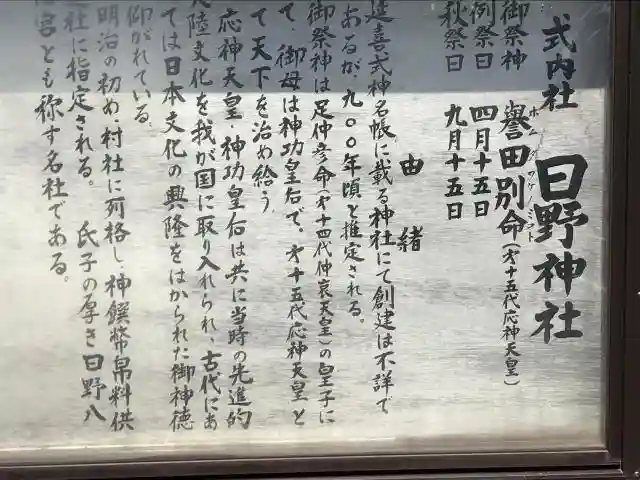 式内社 日野神社
御祭神 譽田別命(才十五代応神天皇)
ホムタワケノミコト
例祭日 四月十五日
秋祭日 九月十五日
由緒
延喜式神名帳に載る神社にて創建は不詳で
あるが、九〇〇年頃と推定される。
御祭神は足仲彦命(才十四代仲哀天皇)の皇子に
て、御母は神功皇后で、才十五代応神天皇と
て天下を治め給う。
応神天皇・神功皇后は共に当時の先進的
大陸文化を我が国に取り入れられ、古代にあ
ては日本文化の興隆をはかられた御神徳
仰がれている。
明治の初め、村社に列格し、神饌幣帛料供
社に指定される。氏子の厚き日野八
宮とも称す名社である。